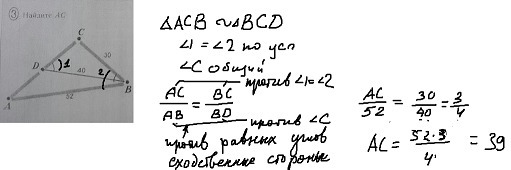 ③ Найдите AC
C
30
D
1
40
2
B
A
52
△ACB ∾ △BCD
∠1 = ∠2 по усл
∠C общий
против ∠1=∠2
AC/AB = BC/BD
против ∠C
против равных углов
сходственные стороны
AC/52 = 30/40 = 3/4
AC = 52·3/4 = 39